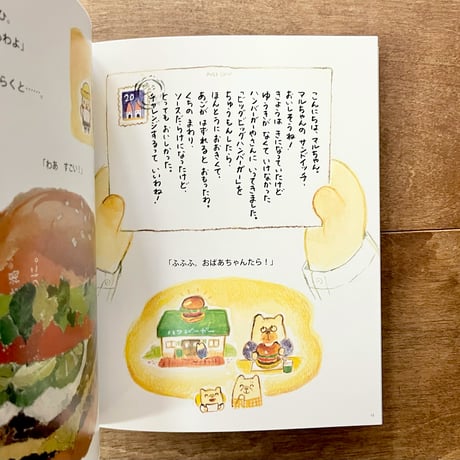 ひ。
わよ」
らくと……。
「わあ すごい！」
POST CARD
20
こんにちは、マルちゃん。
マルちゃんの サンドイッチ、
おいしそうね！
きょうは きになっていたけど
ゆうきが なくて いけなかった、
ハンバーガーやさんに いってきました。
「ビッグビッグハンバーガー」を
ちゅうもんしたら、
ほんとうに おおきくて、
あごが はずれると おもったわ。
くちの まわり、
ソースだらけに なったけど、
とっても おいしかった。
チャレンジするって いいわね！
「ふふふ、おばあちゃんたら！」
ハンバーガー